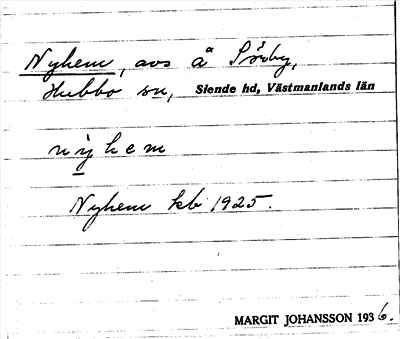 Nyhem, avs å Sörby,
Hubbo sn, Siende hd, Västmanlands län
nyhem
Nyhem kb 1925.
MARGIT JOHANSSON 1936.